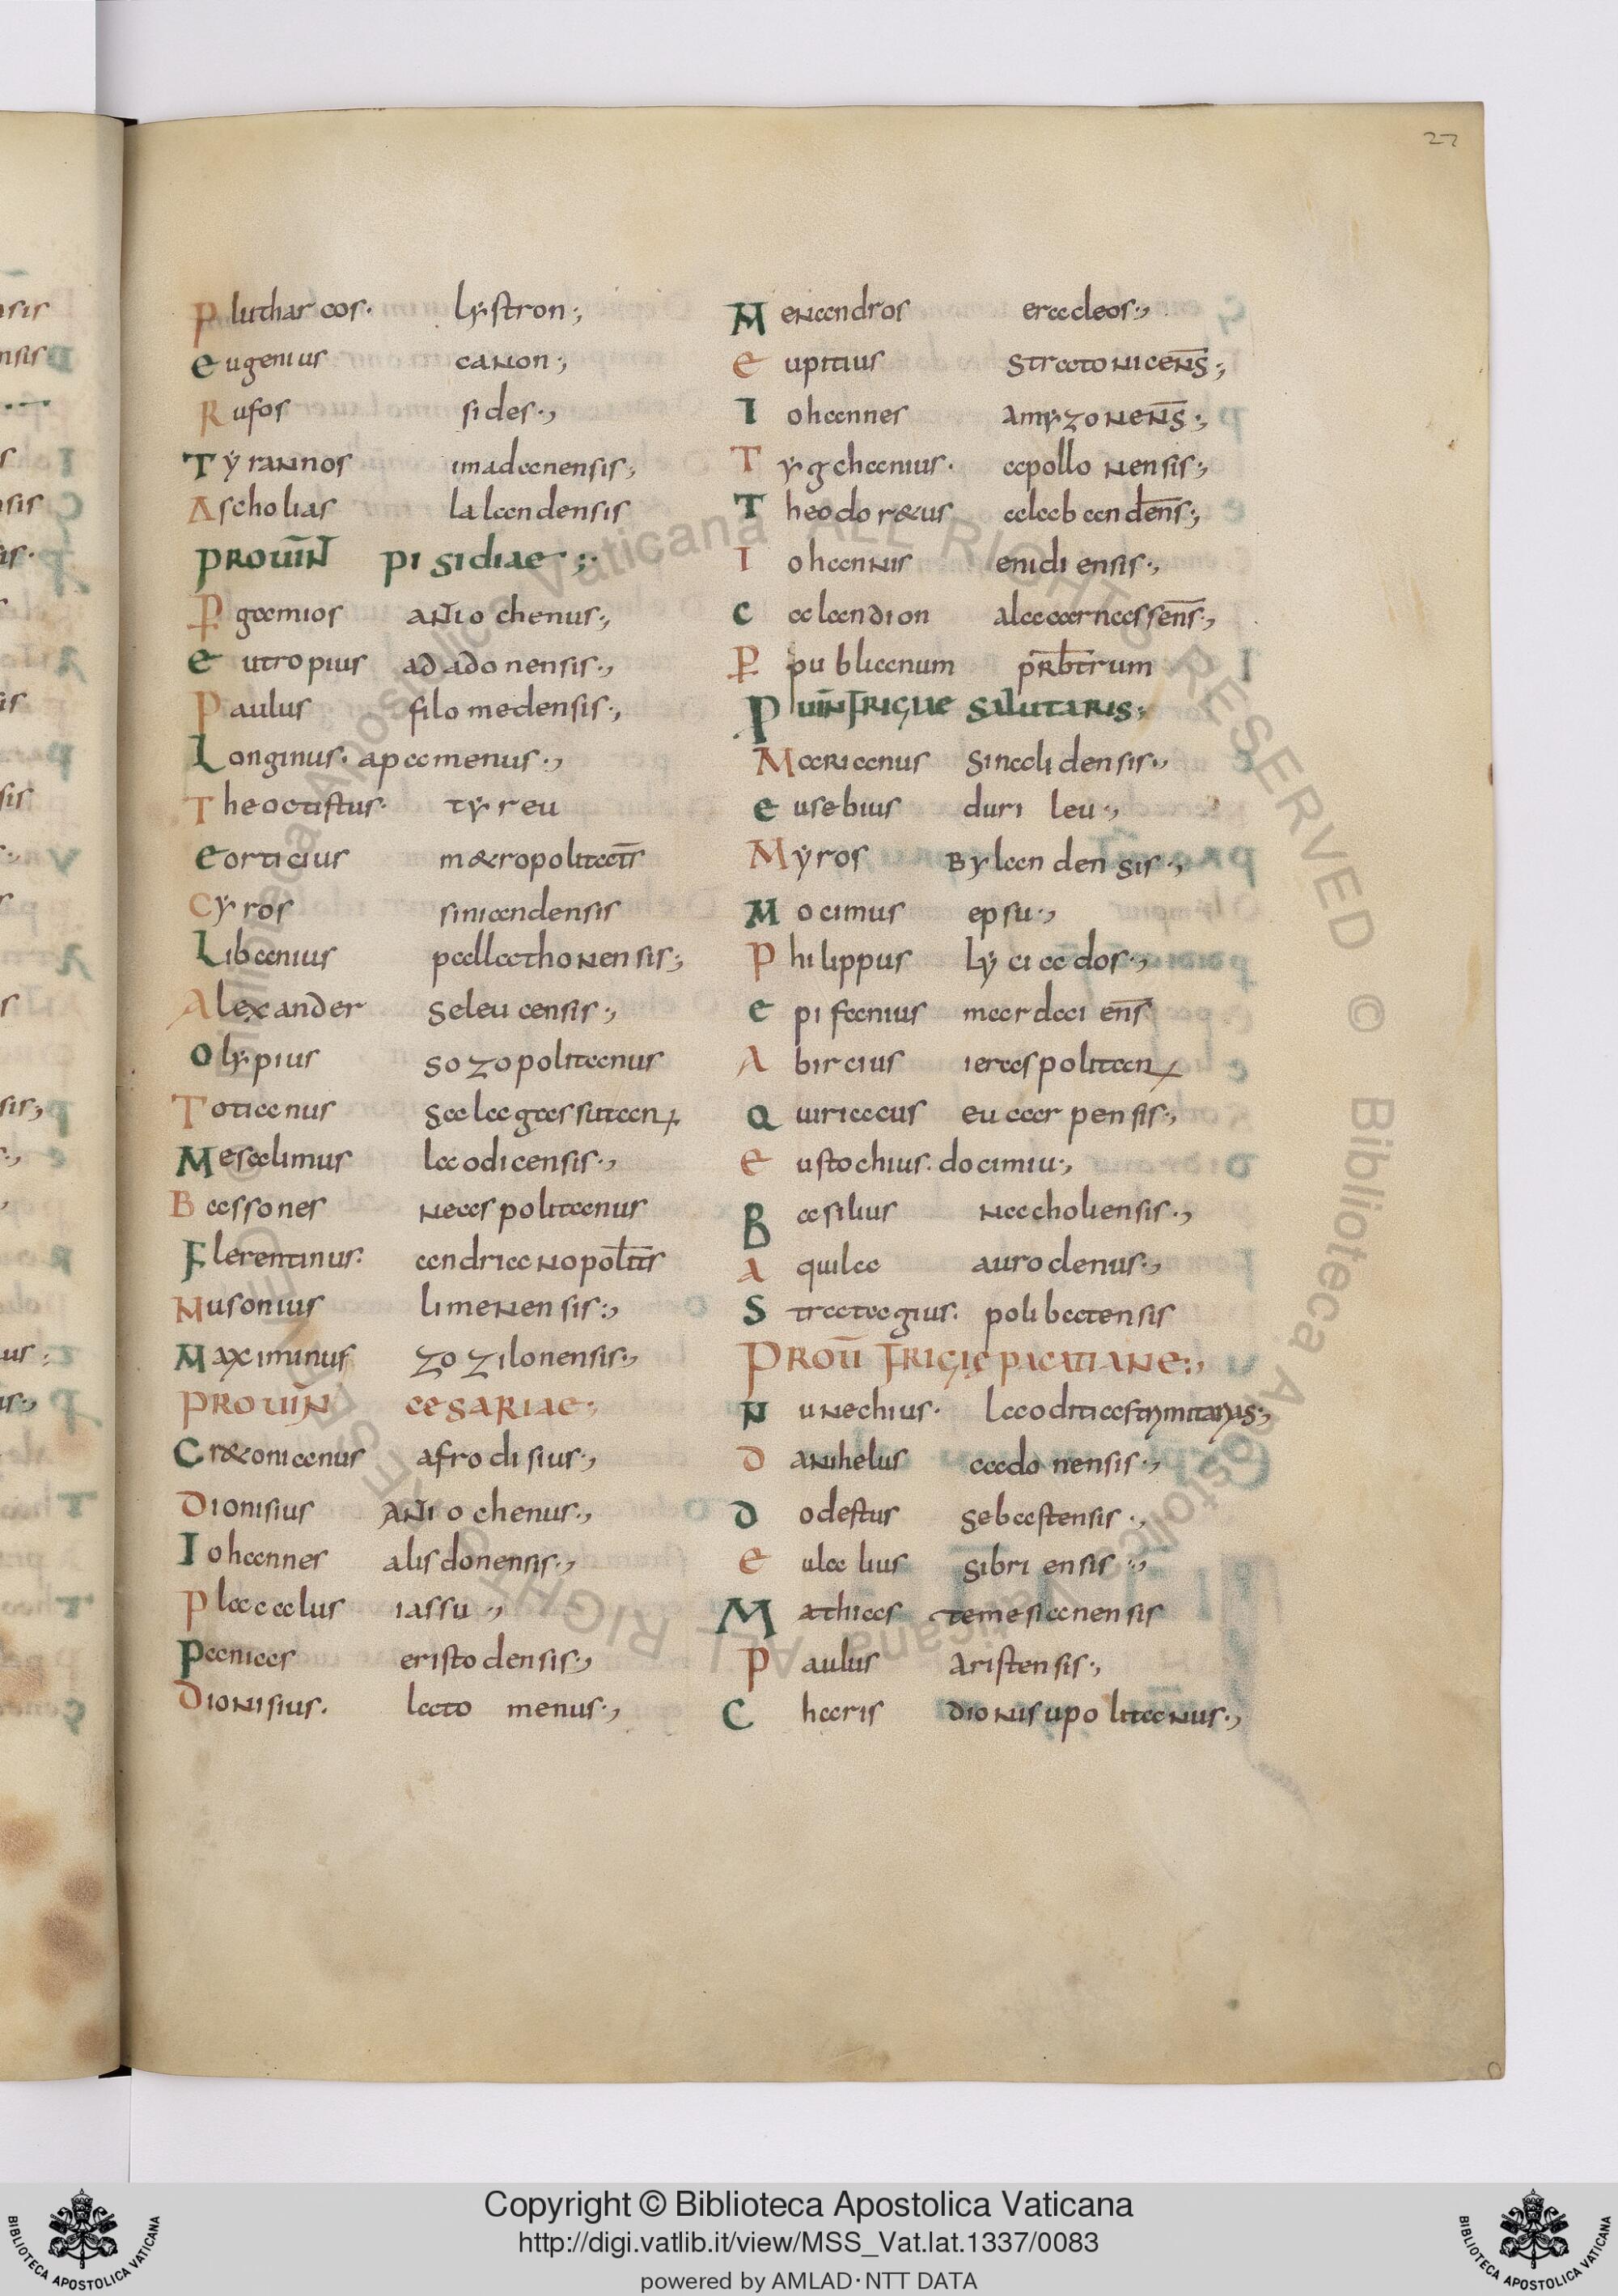 27
Plutharcos· lystron;
eugenius canon;
Rufos sides·,
Tẏrannos imadanensis;
Ascholias lalandensis
PROUIN̄ pisidiae;·
Pgamios antiochenus·,
eutropius adadonensis·,
Paulus filomedensis·,
Longinus· apamenus·,
Theoctistus· tẏreu
eorticius m&ropolitat̄r
Cẏros siniandensis
Libanius pallathonensis;
Alexander seleucensis·,
Olẏpius sozopolitanus
Totianus salagassitan
Mesalimus laodicensis·,
Bassones neaspolitanus
Flerentinus· andrianopol̄it̄s
Musonius limenensis:,
Maximinus zozilonensis·,
PROUIN̄ CESARIAE;
Cr&onianus afrodisius·,
Dionisius antiochenus·,
Iohannes alisdonensis·,
Placcalus iassu·,
Panias eristodensis·,
Dionisius· latomenus·,
Menandros eracleos·,
eupitius stratonicen̄s;
Iohannes amẏzonen̄s·,
Tẏgchanius· apollonensis·,
Theodor&us alaband̄ens·,
Iohannis enidiensis·,
calandion alecarnassen̄s·,
P publianum p̄rb̄trum
Puin̄ friçiae salutaris;
Marianus sinalidensis·,
eusebius durileu·,
Mẏros Bylandensis·,
Mocimus epsu·,
Philippus lẏciados·,
epifanius mardaien̄s
Abircius ieraspolitan
Quiriacus eucarpensis·,
eustochius· docimiu·,
Basilius nacholiensis·,
aquila auroclenus·,
Strategius· polibatensis
PROŪ FRIÇIĘ PACATIANE:,
Nunechius·
Danihelus cadonensis·,
Dodestus sebastensis·,
eulalius sibriensis·,
Mathias temesianensis
Paulus Aristensis·,
Charis dionisupolitanus·,
Copyright © Biblioteca Apostolica Vaticana
http://digi.vatlib.it/view/MSS_Vat.lat.1337/0083
powered by AMLAD·NTT DATA
BIBLIOTECA APOSTOLICA VATICANA
BIBLIOTECA APOSTOLICA VATICANA